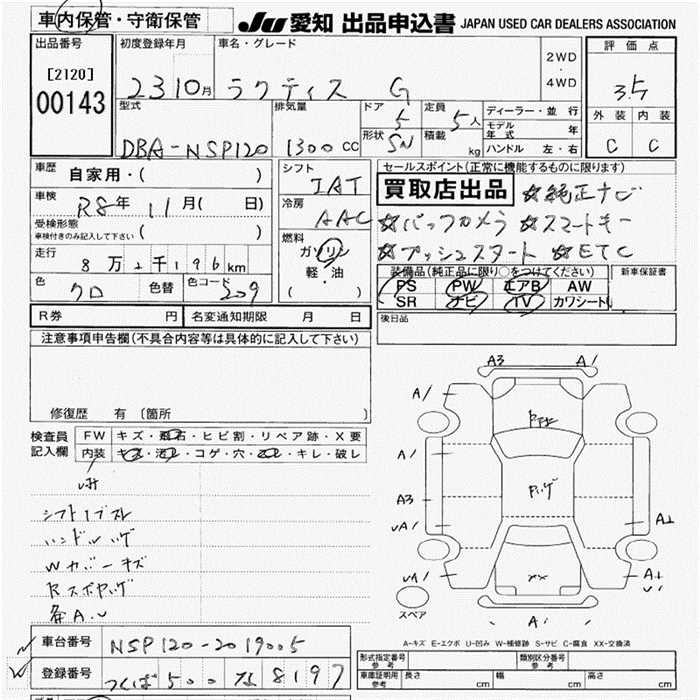 車内保管・守衛保管
JU 愛知 出品申込書 JAPAN USED CAR DEALERS ASSOCIATION
出品番号 初度登録年月 車名・グレード 2WD ・ 4WD 評価点
[2120]
00143 23 10月 ラクティス G 3.5
型式 排気量 ドア 5 定員 5人 ディーラー・並行 外装 内装
DBA-NSP120 1300cc 形状 SN 積載 kg モデル年式 年 C C
ハンドル 左・右
車歴 自家用・( ) シフト IAT セールスポイント(正常に機能するものに限ります)
車検 R8年 11月( 日) 冷房 AAC 買取店出品 ☆純正ナビ
受検形態 ☆バックカメラ ☆スマートキー
車検付きのみ記入して下さい ( ) 燃料 ☆プッシュスタート ☆ETC
走行 8万2千196km ガソリン
軽・油
( )
装備品(純正品に限り○をつけてください) 新車保証書
色 クロ 色替 色コード 209 PS PW エアB AW
SR ナビ TV カワシート
R券 円 名変通知期限 月 日 後日品
注意事項申告欄(不具合内容等は具体的に記入して下さい)
修復歴 有 〔箇所 〕
検査員 記入欄 FW キズ・飛石・ヒビ割・リペア跡・X要
内装 キズ・汚レ・コゲ・穴・ ・キレ・破レ
A3 A1
A1
A1
A3
A1
ハンドル ハゲ
Wカバーキズ
XX
A
スペア
A-キズ E-エクボ U-凹み W-補修跡 S-サビ C-腐食 XX-交換済
車台番号 NSP120-2019005
登録番号 つくば 500 な 8197
形式指定番号 参考 類別区分番号 参考
車庫証明用 参考 長さ cm 幅 cm 高さ cm